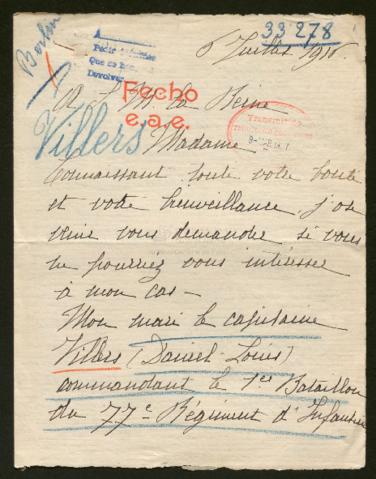 33278
Berlin
6 Juillet 1918
A
Pedir
Que se
Devolver
Fecho
e.a.e.
A S. M. la Reine
Villers
Madame
Connaissant toute votre bonté
et votre bienveillance j'ose
venir vous demander si vous
ne pourriez vous intéresser
à mon cas —
Mon mari le capitaine
Villers (Daniel-Louis)
commandant le 1er Bataillon
du 77e Régiment d'Infanterie